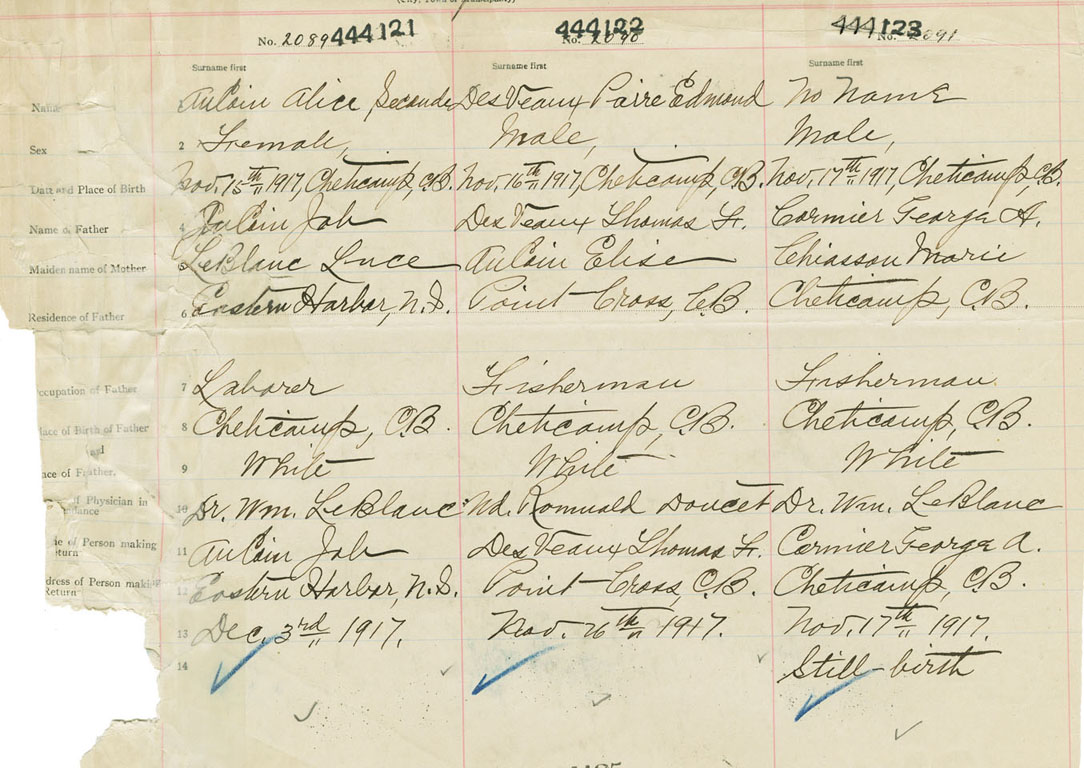 No. 2089 444121 444122 No. 2090 444123 No. 2091
Surname first Surname first Surname first
Name AuCoin Alice Secunde DesVeaux Paire Edmond No Name
Sex 2 Female, Male, Male,
Date and Place of Birth Nov. 15th 1917, Cheticamp, C.B. Nov. 16th 1917, Cheticamp, C.B. Nov. 17th 1917, Cheticamp, C.B.
Name of Father 4 AuCoin Job DesVeaux Thomas Fr. Cormier George A.
Maiden name of Mother 5 LeBlanc Luce AuCoin Elise Chiasson Marie
Residence of Father 6 Eastern Harbor, N.S. Point Cross, C.B. Cheticamp, C.B.
ccupation of Father 7 Laborer Fisherman Fisherman
lace of Birth of Father 8 Cheticamp, C.B. Cheticamp, C.B. Cheticamp, C.B.
and
ace of Father, 9 White White White
of Physician in
10 Dr. Wm. LeBlanc Md. Romuald Doucet Dr. Wm. LeBlanc
e of Person making
eturn 11 AuCoin Job DesVeaux Thomas Fr. Cormier George A.
dress of Person maki
Return 12 Eastern Harbor, N.S. Point Cross, C.B. Cheticamp, C.B.
13 Dec. 3rd 1917. Nov. 26th 1917. Nov. 17th 1917.
14 Still birth